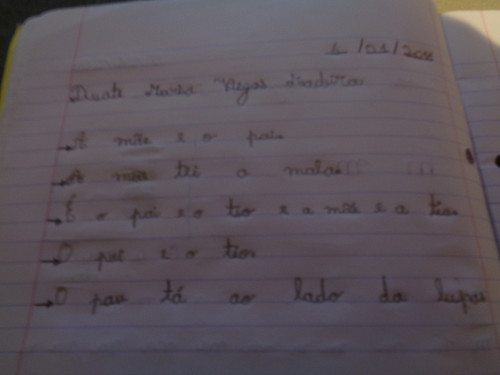 /01/201
Duate Maria Viegas
→A mãe e o pai.
→A mãe tei a mala.
→É o pai e o tio e a mãe e a tia.
→O pai e o tio.
→O pau tá ao lado da lupa.